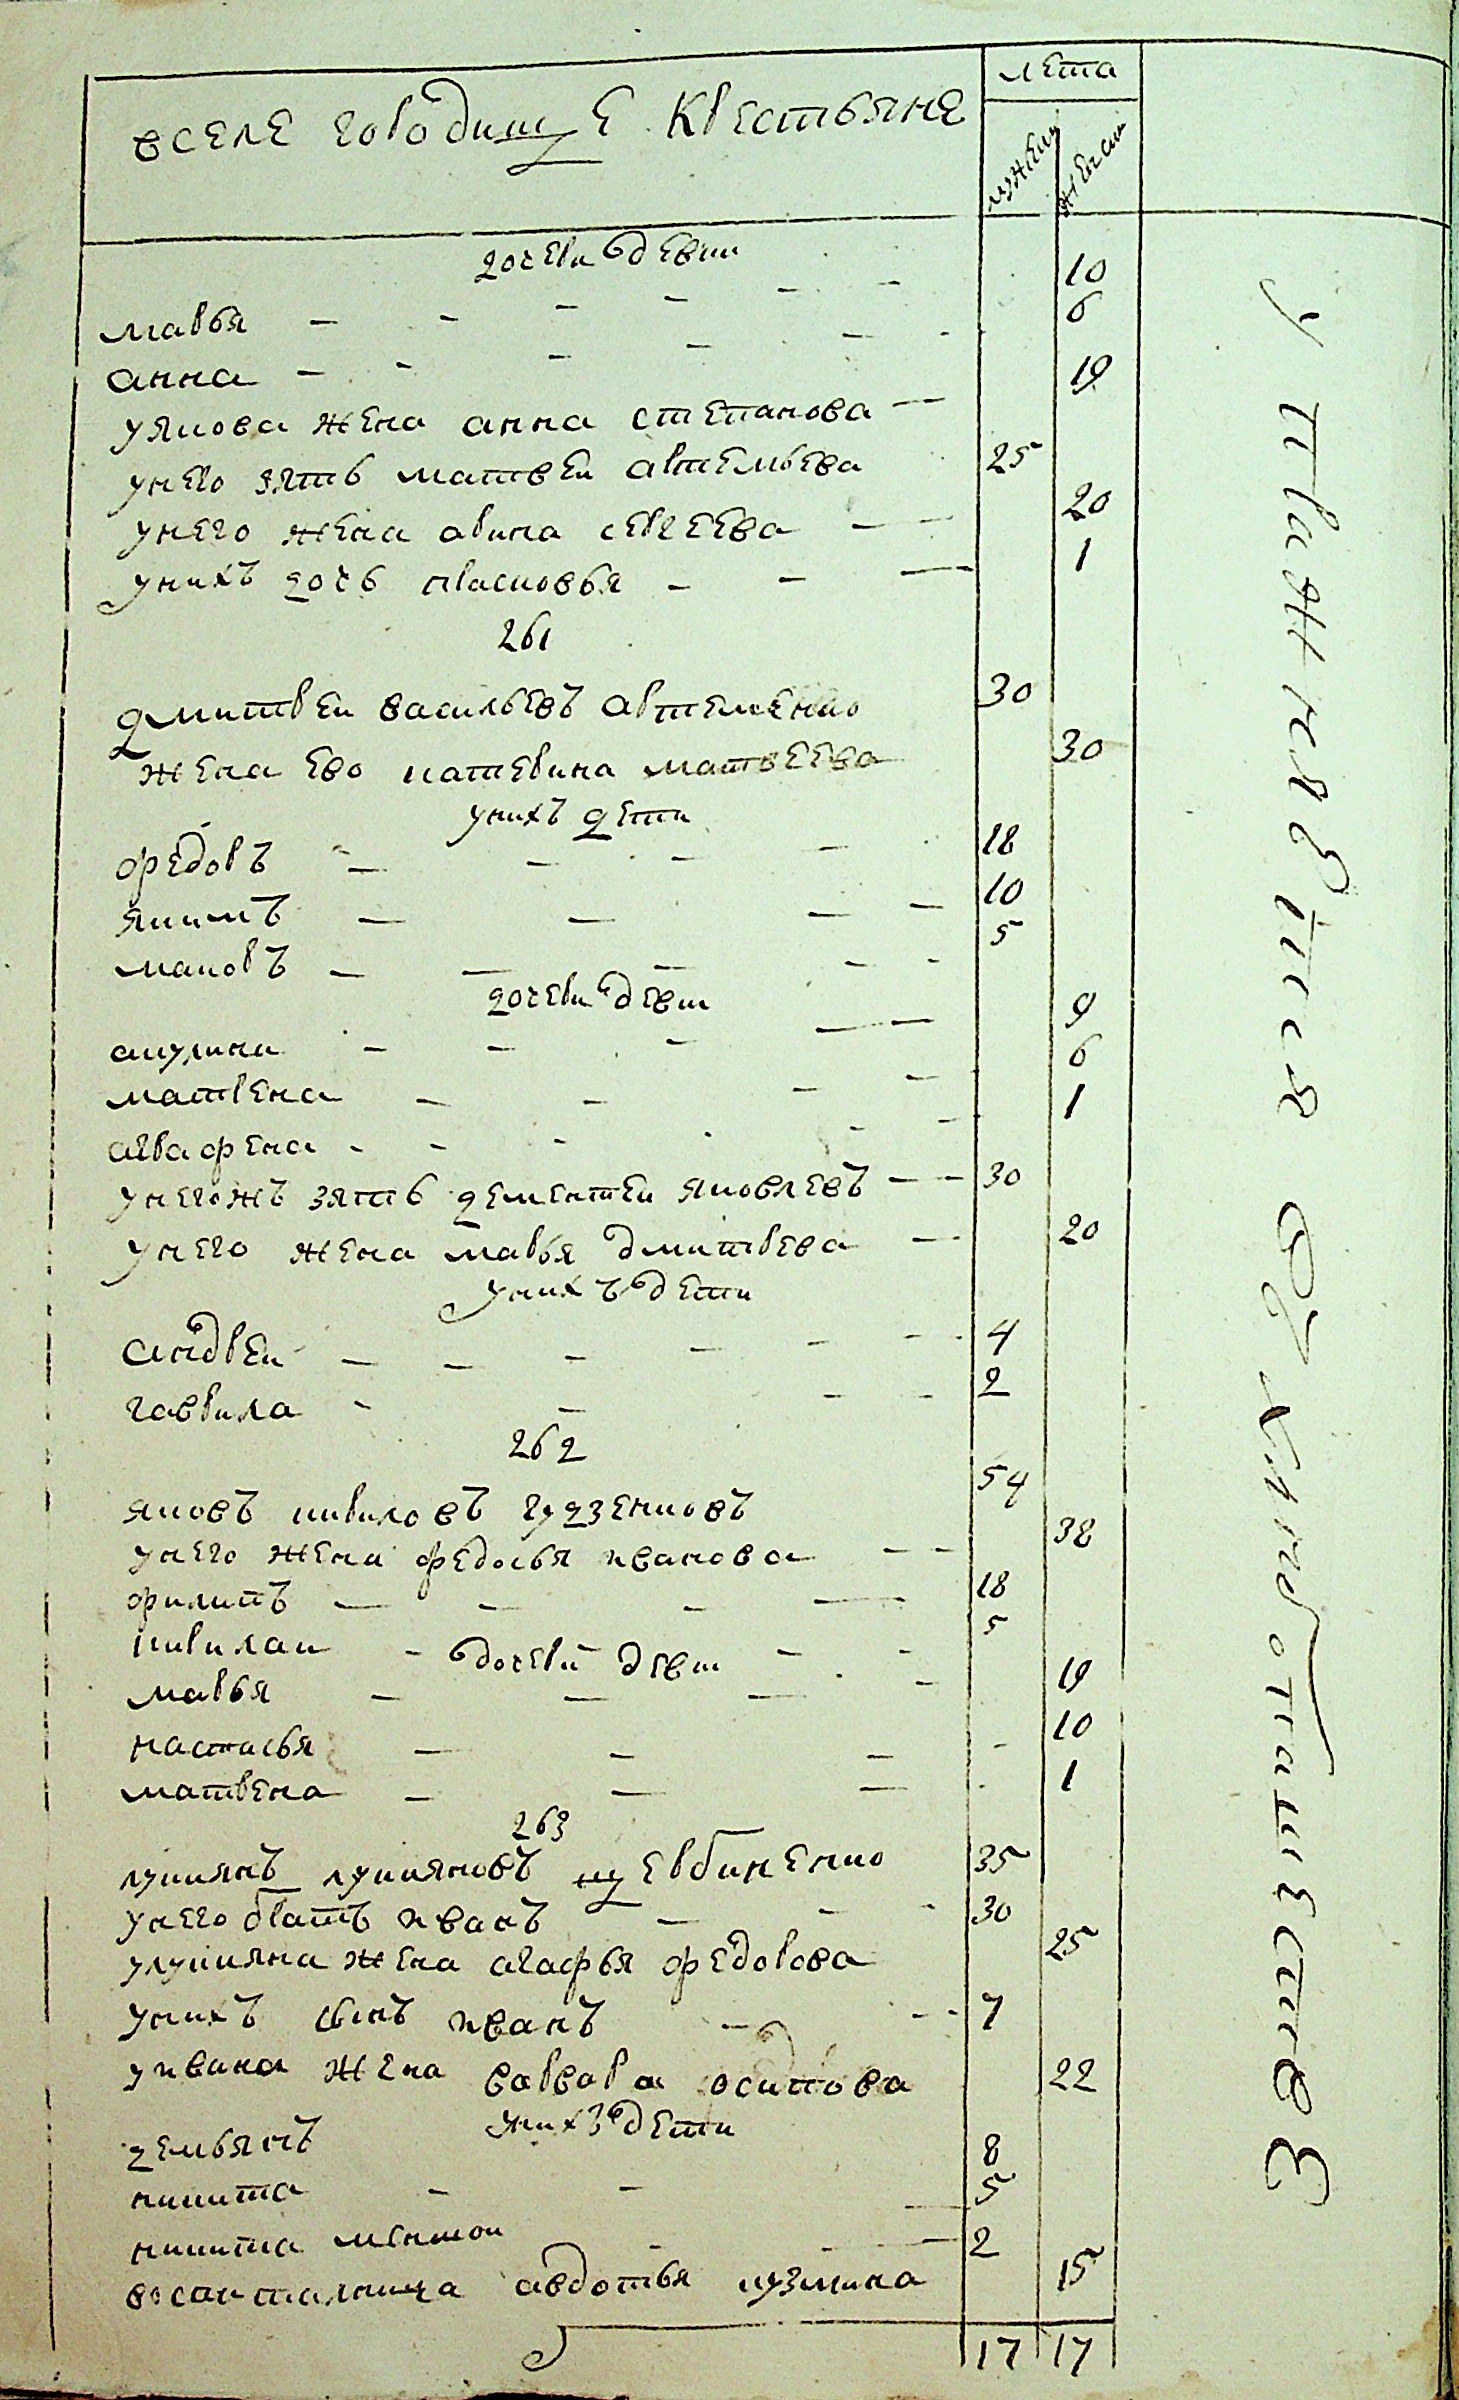 лета
вселе городище крестьяне
мужеск
женск
дочери девки
10
марья
6
анна
19
уякова жена анна степанова
унего зять матвеи артемьева 25
унего жена арина сергеева 20
унихъ дочь прасковья 1
261
дмитреи васильевъ артеменко 30
жена ево катерина матвеева 30
унихъ дети
федоръ 18
якимъ 10
макоръ 5
дочери девки
акулина 9
матрена 6
аграфена 1
унегожъ зять дементеи яковлевъ 30
унего жена марья дмитрева 20
унихъ дети
андреи 4
гаврила 2
262
яковъ кириловъ гудзенковъ 54
унего жена федосья иванова 38
филипъ 18
кирилаи 5
дочери девки
марья 19
настасья 10
матрена 1
263
лукиянъ лукияновъ щербиненко 35
унего братъ иванъ 30
улукияна жена агафья федорова 25
унихъ сынъ иванъ 7
уивана жена варвара осипова 22
унихъ дети
демьянъ 8
никита 5
никита меншои 2
воспиталница авдотья кузмина 15
17 17